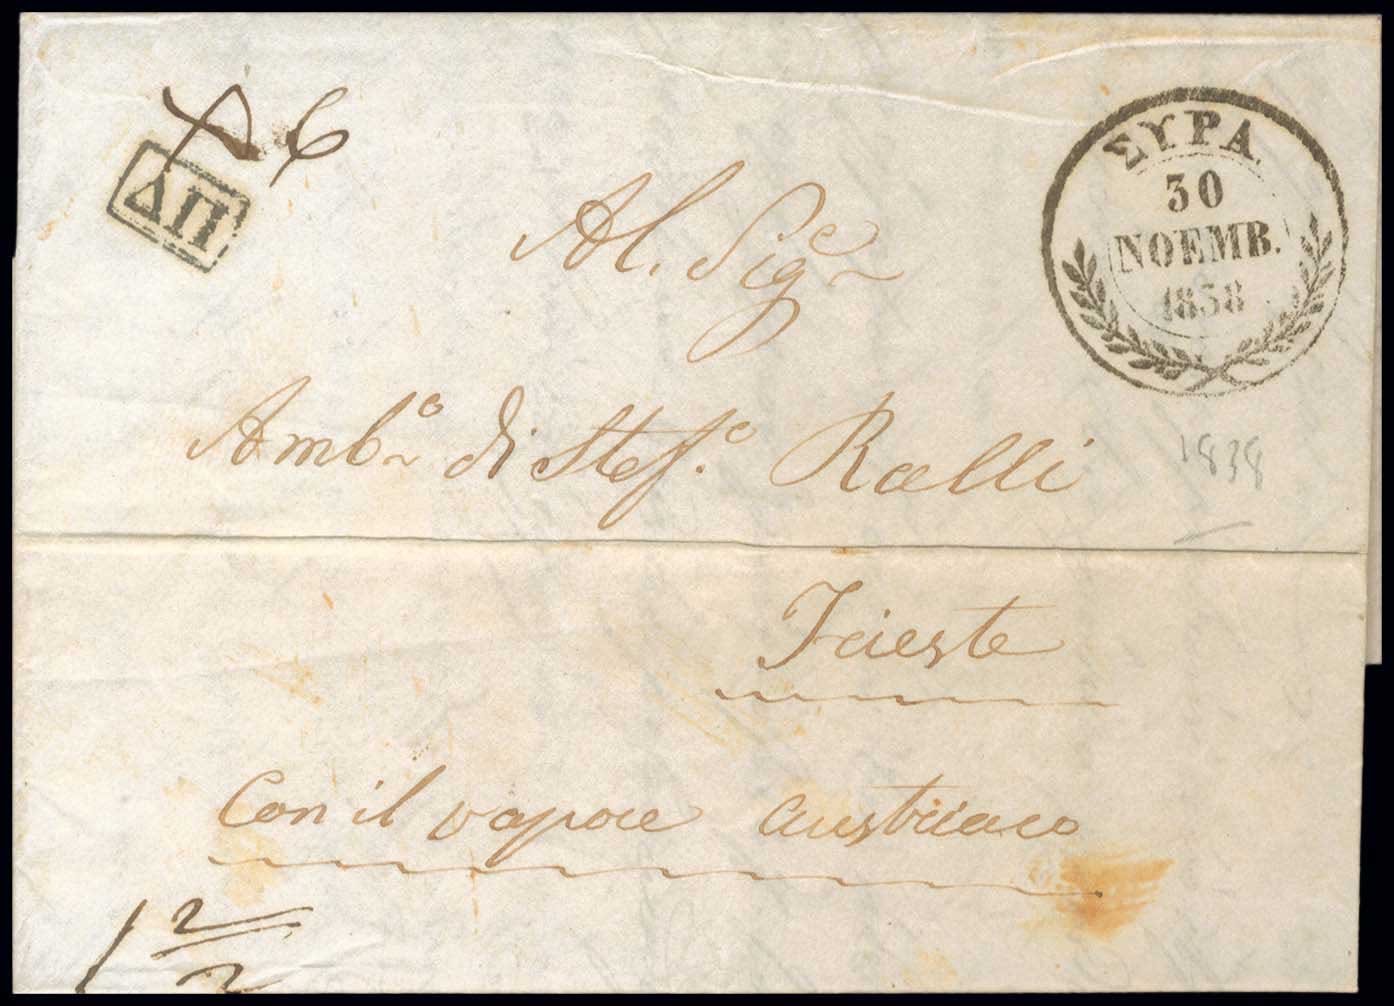 6
ΔΠ
ΣΥΡΑ
30
ΝΟΕΜΒ.
1838
Al. Sigᵉ
Ambᵒ di Stefᵒ Ralli
1838
Trieste
Con il vapore austriaco